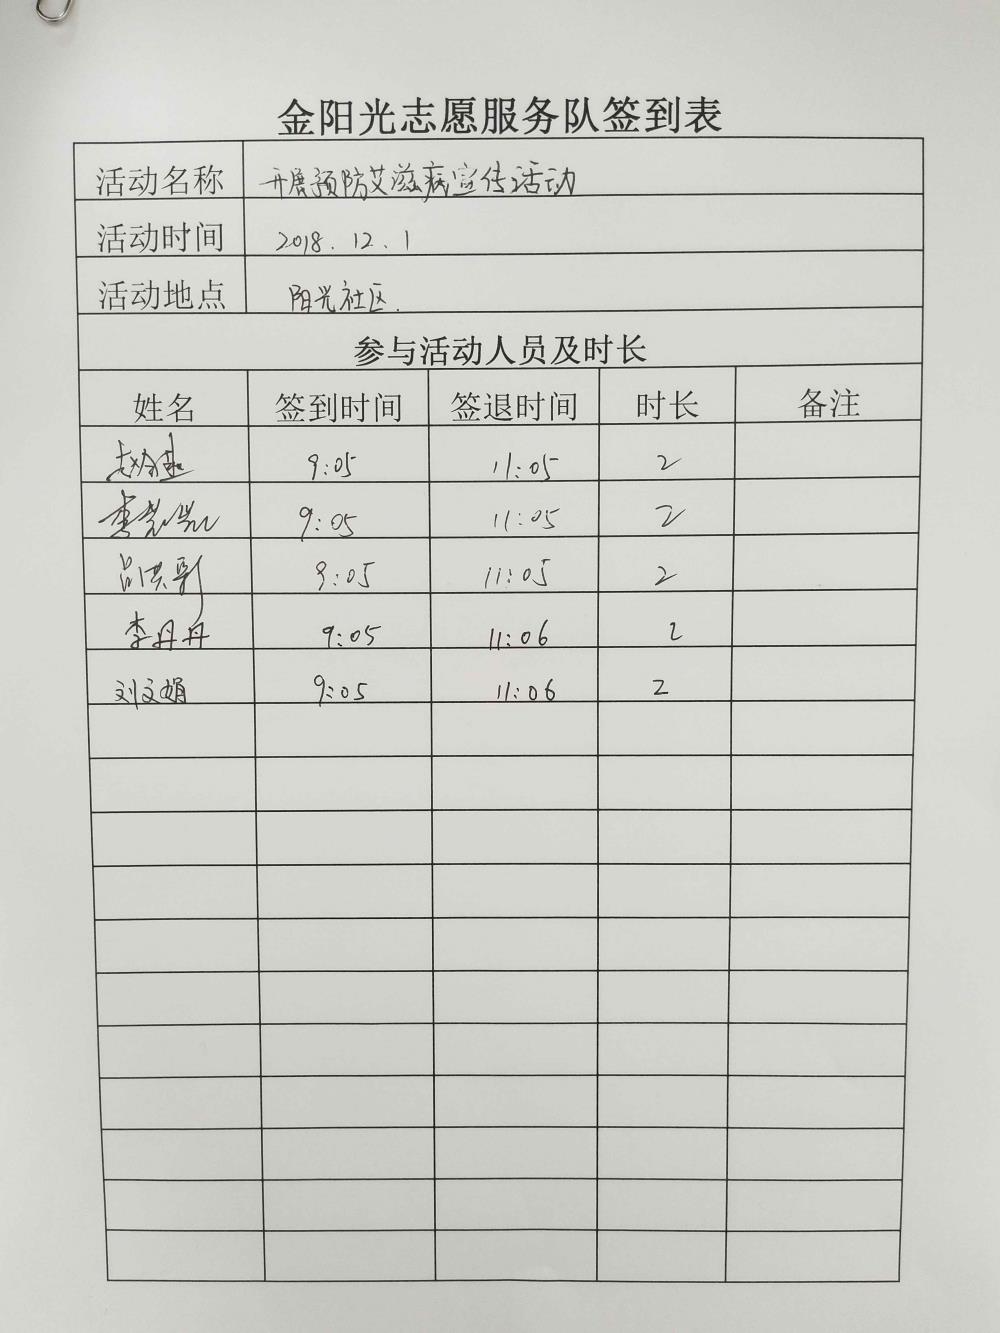 金阳光志愿服务队签到表
活动名称 开展预防艾滋病宣传活动
活动时间 2018.12.1
活动地点 阳光社区.
参与活动人员及时长
姓名 签到时间 签退时间 时长 备注
9:05 11:05 2
9:05 11:05 2
9:05 11:05 2
李丹丹 9:05 11:06 2
刘文娟 9:05 11:06 2